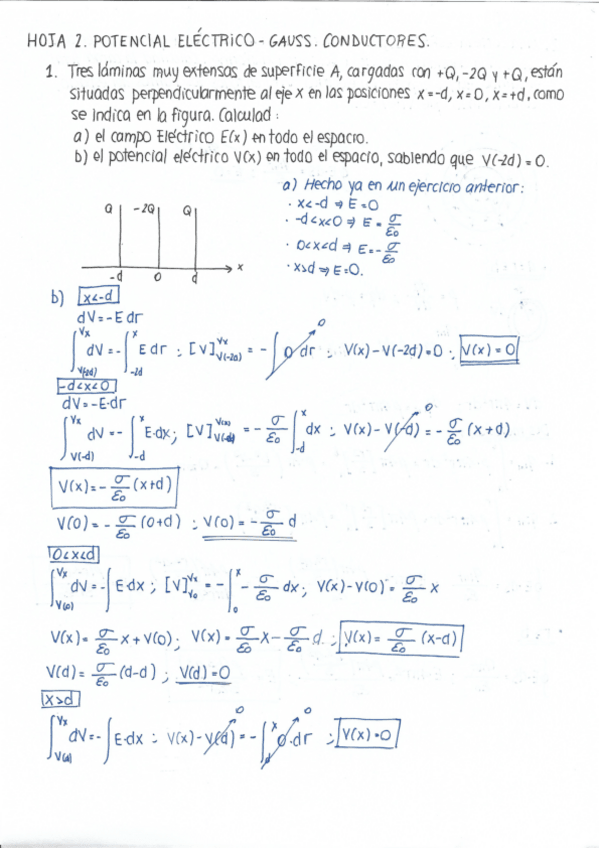 HOJA 2. POTENCIAL ELÉCTRICO - GAUSS. CONDUCTORES.
1. Tres láminas muy extensas de superficie A, cargadas con +Q, -2Q y +Q, están
situadas perpendicularmente al eje x en las posiciones x=-d, x=0, x=+d, como
se indica en la figura. Calculad:
a) el campo Eléctrico E(x) en todo el espacio.
b) el potencial eléctrico V(x) en todo el espacio, sabiendo que V(-2d)=0.
a) Hecho ya en un ejercicio anterior:
· x<-d ⇒ E=0
· -d<x<0 ⇒ E = σ/ε₀
· 0<x<d ⇒ E = -σ/ε₀
· x>d ⇒ E=0.
Q -2Q Q
-d 0 d x
b) x<-d
dV=-E dr
∫_{V(-2d)}^{Vx} dV = -∫_{-2d}^{x} E dr ; [V]_{V(-2d)}^{Vx} = -∫ 0 dr 0 ; V(x)-V(-2d)=0 ; V(x)=0
-d<x<0
dV=-E·dr
∫_{V(-d)}^{Vx} dV = -∫_{-d}^{x} E·dx ; [V]_{V(-d)}^{V(x)} = -σ/ε₀ ∫_{-d}^{x} dx ; V(x)-V(-d) 0 = -σ/ε₀ (x+d)
V(x)=-σ/ε₀ (x+d)
V(0)=-σ/ε₀ (0+d) ; V(0)=-σ/ε₀ d
0<x<d
∫_{V(0)}^{Vx} dV = -∫ E·dx ; [V]_{V0}^{Vx} = -∫_{0}^{x} -σ/ε₀ dx ; V(x)-V(0)=σ/ε₀ x
V(x)=σ/ε₀ x+V(0) ; V(x)=σ/ε₀ x-σ/ε₀ d ; V(x)=σ/ε₀ (x-d)
V(d)=σ/ε₀ (d-d) ; V(d)=0
x>d
∫_{V(d)}^{Vx} dV = -∫ E·dx ; V(x)-V(d) 0 = -∫^{x} 0·dr 0 ; V(x)=0